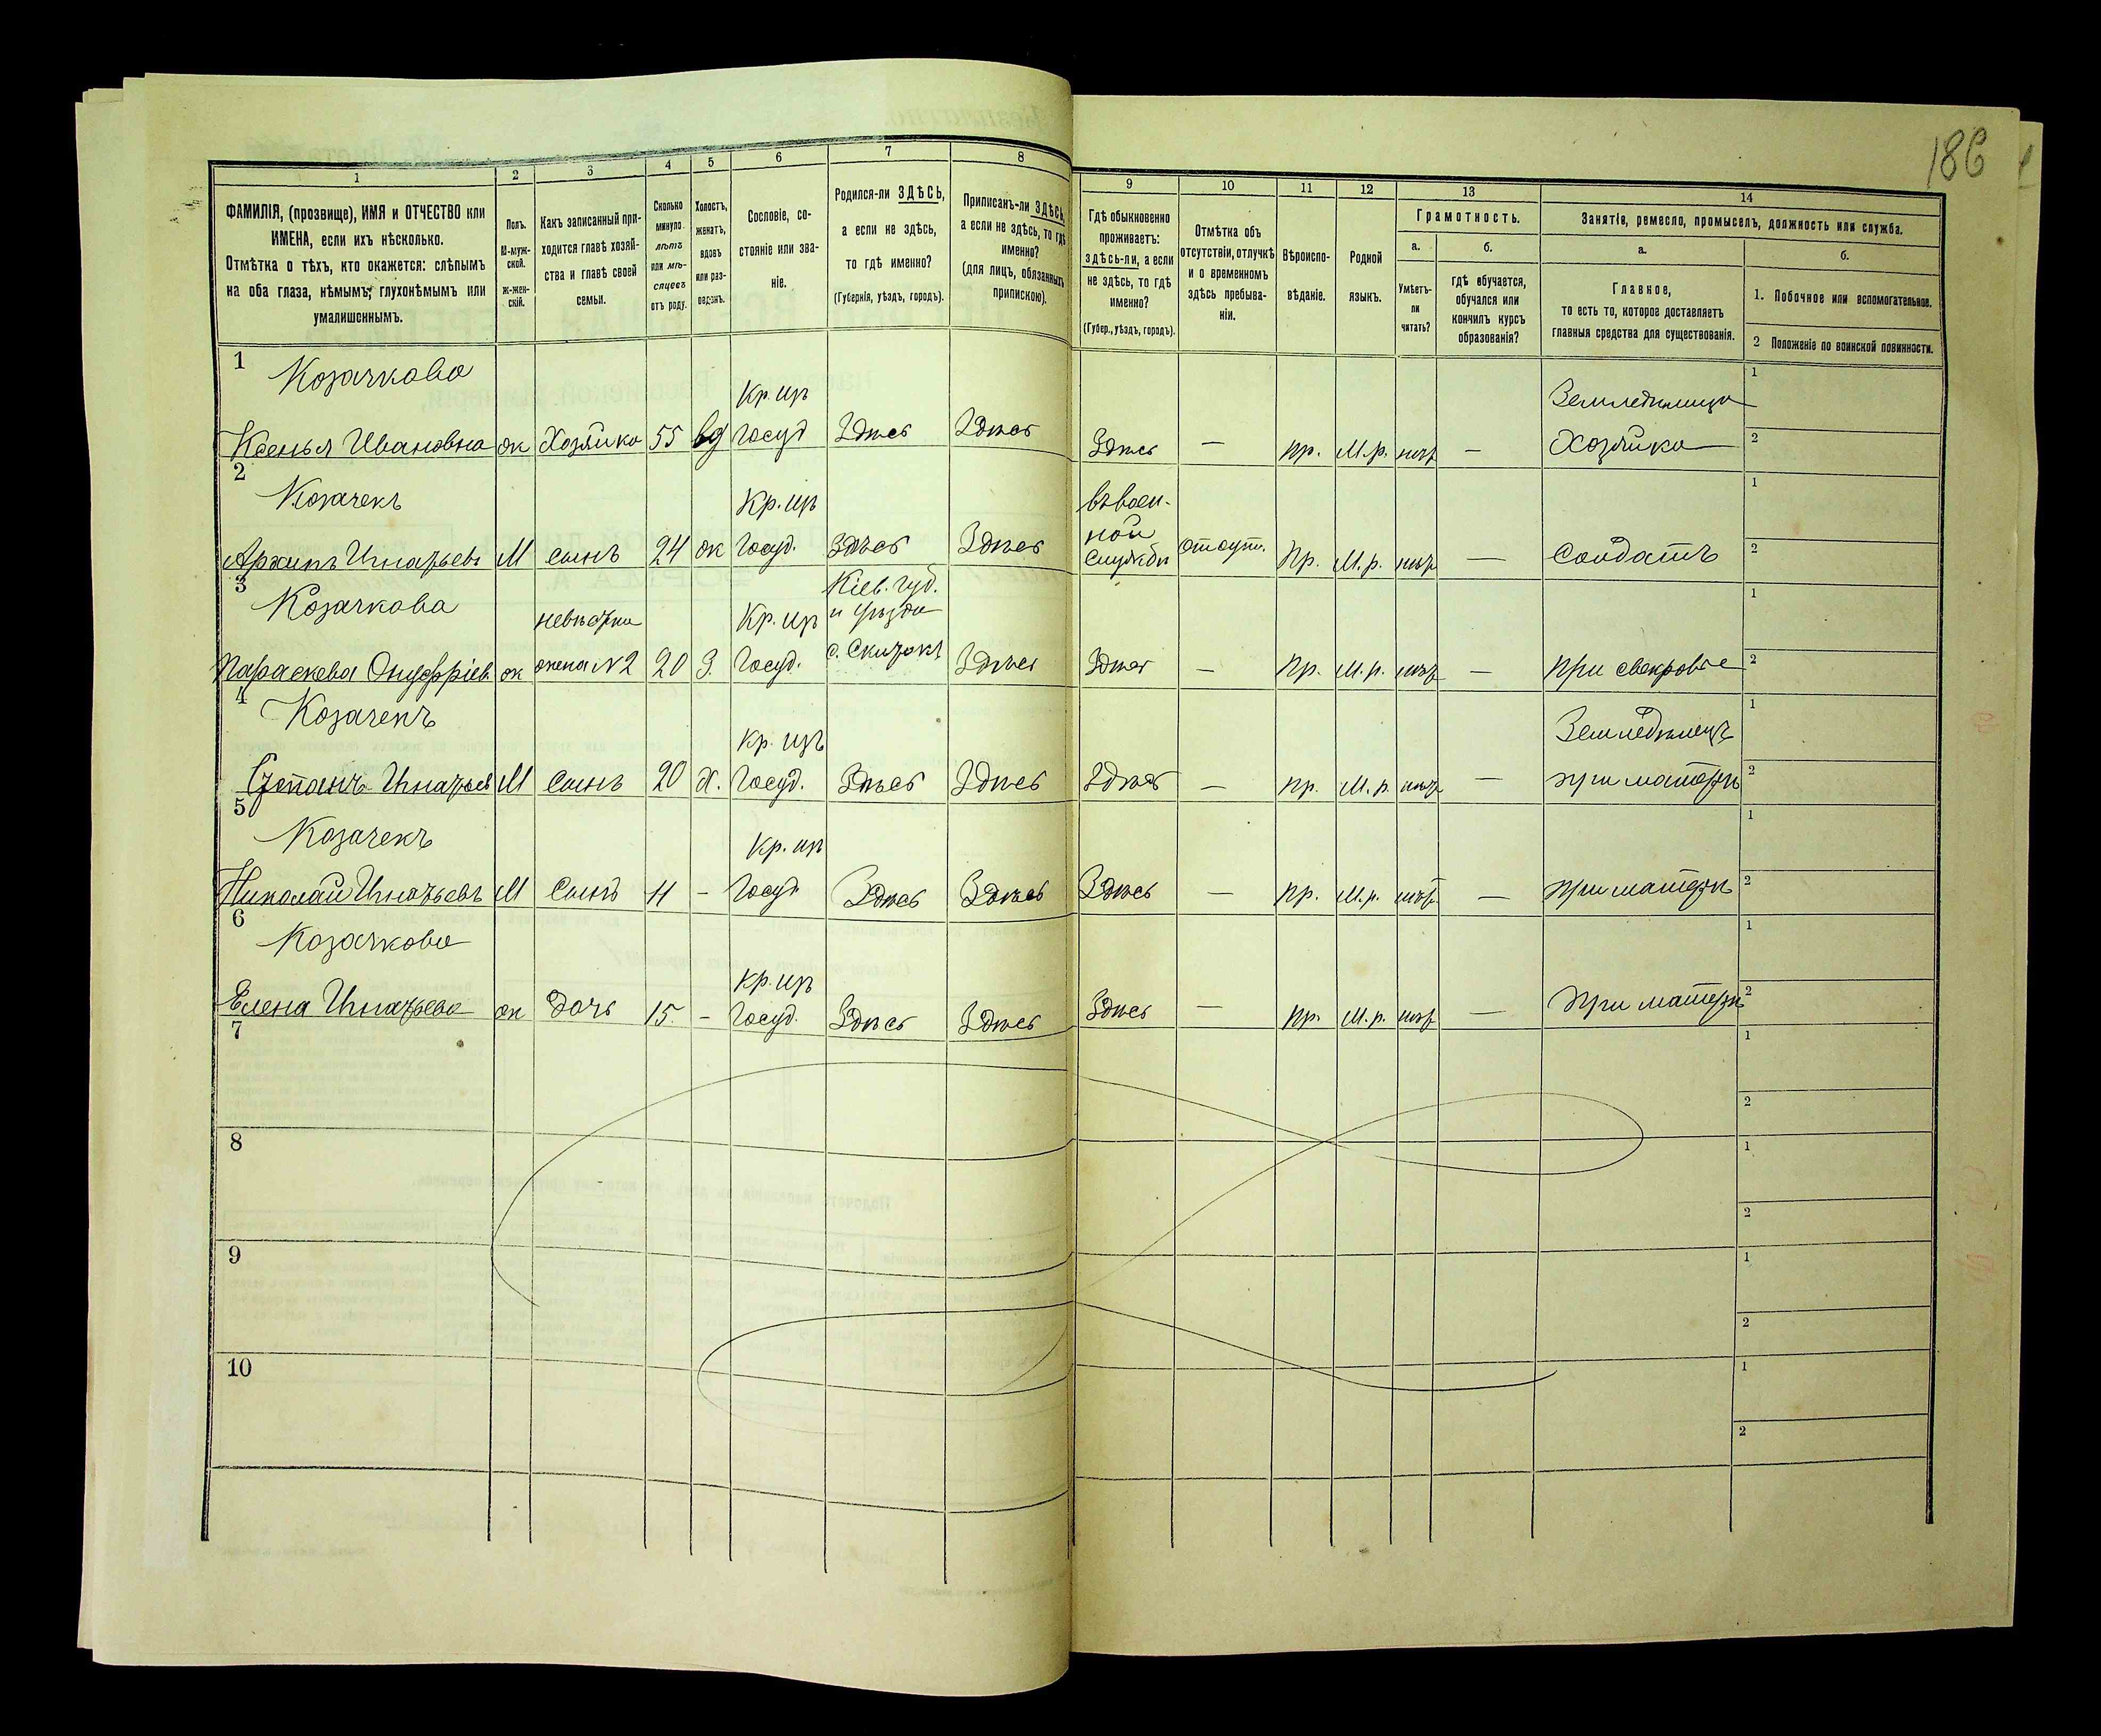 186
1
2
3
4
5
6
7
8
9
10
11
12
13
14
ФАМИЛІЯ, (прозвище), ИМЯ и ОТЧЕСТВО или
ИМЕНА, если ихъ нѣсколько.
Отмѣтка о тѣхъ, кто окажется: слѣпымъ
на оба глаза, нѣмымъ, глухонѣмымъ или
умалишеннымъ.
Полъ.
М-муж-
ской.
Ж-жен-
скій.
Какъ записанный при-
ходится главѣ хозяй-
ства и главѣ своей
семьи.
Сколько
минуло
лѣтъ
или мѣ-
сяцевъ
отъ роду.
Холостъ,
женатъ,
вдовъ
или раз-
веденъ.
Сословіе, со-
стояніе или зва-
ніе.
Родился-ли ЗДѢСЬ,
а если не здѣсь,
то гдѣ именно?
(Губернія, уѣздъ, городъ).
Приписанъ-ли ЗДѢСЬ,
а если не здѣсь, то гдѣ
именно?
(для лицъ, обязанныхъ
припискою).
Гдѣ обыкновенно
проживаетъ:
здѣсь-ли, а если
не здѣсь, то гдѣ
именно?
(Губер., уѣздъ, городъ).
Отмѣтка объ
отсутствіи, отлучкѣ
и о временномъ
здѣсь пребыва-
ніи.
Вѣроиспо-
вѣданіе.
Родной
языкъ.
Грамотность.
а.
Умѣетъ-
ли
читать?
б.
гдѣ обучается,
обучался или
кончилъ курсъ
образованія?
Занятіе, ремесло, промыселъ, должность или служба.
а.
Главное,
то есть то, которое доставляетъ
главныя средства для существованія.
б.
1. Побочное или вспомогательное.
2 Положеніе по воинской повинности.
1 Козачкова Кр. изъ Земледѣлица 1
Ксенья Ивановна ж Хозяйка 55 вд Госуд Здѣсь Здѣсь Здѣсь — пр. М.р. нѣтъ — Хозяйка 2
2 Козачекъ Кр. изъ въ воен- 1
ной
Архипъ Игнатьевъ М сынъ 24 ж Госуд. Здѣсь Здѣсь службѣ Отсут. Пр. М.р. нѣтъ — Солдатъ 2
3 Козачкова невѣстка Кр. изъ Кіев. губ. 1
и уѣзда
Параскева Онуфріев. ж жена №2 20 З. Госуд. с. Здѣсь Здѣсь — Пр. М.р. нѣтъ — При свекровье 2
4 Козачекъ Кр. изъ Земледѣлецъ 1
Степанъ Игнатьев М Сынъ 20 Х. Госуд. Здѣсь Здѣсь Здѣсь — пр. М.р. нѣтъ — при матери 2
5 Козачекъ Кр. изъ 1
Николай Игнатьевъ М Сынъ 11 — Госуд Здѣсь Здѣсь Здѣсь — пр. М.р. нѣтъ — При матери 2
6 Козачкова Кр. изъ 1
Елена Игнатьева ж Дочь 15. — Госуд. Здѣсь Здѣсь Здѣсь — Пр. М.р. нѣтъ — При матери 2
7 1
2
8 1
2
9 1
2
10 1
2